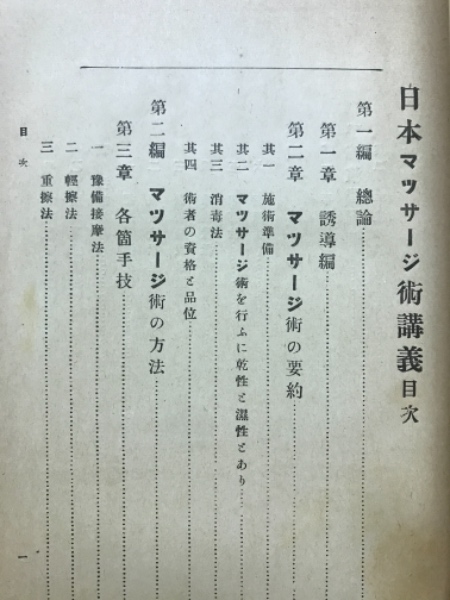 日本マツサージ術講義目次
第一編 總論
第一章 誘導編
第二章 マツサージ術の要約
其一 施術準備
其二 マツサージ術を行ふに乾性と濕性とあり
其三 消毒法
其四 術者の資格と品位
第二編 マツサージ術の方法
第三章 各箇手技
一 豫備按摩法
二 輕擦法
三 重擦法
目次
一